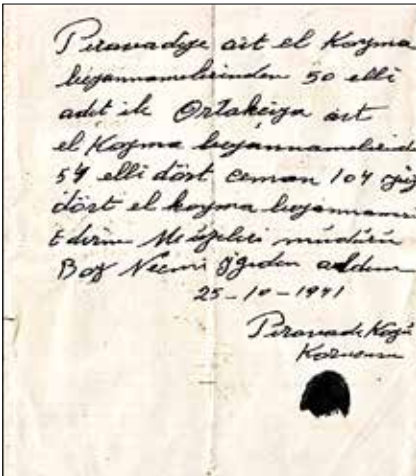 Piravadiye ait el Koyma
beyannamelerinden 50 elli
adet ile Ortakciya ait
el Koyma beyannameleride
54 elli dört ceman 104 yüz
dört el koyma beyannamesi
Edirne müdürü
Bay Necmi aldım
25-10-1941
Piravadi Köyü
Korucusu